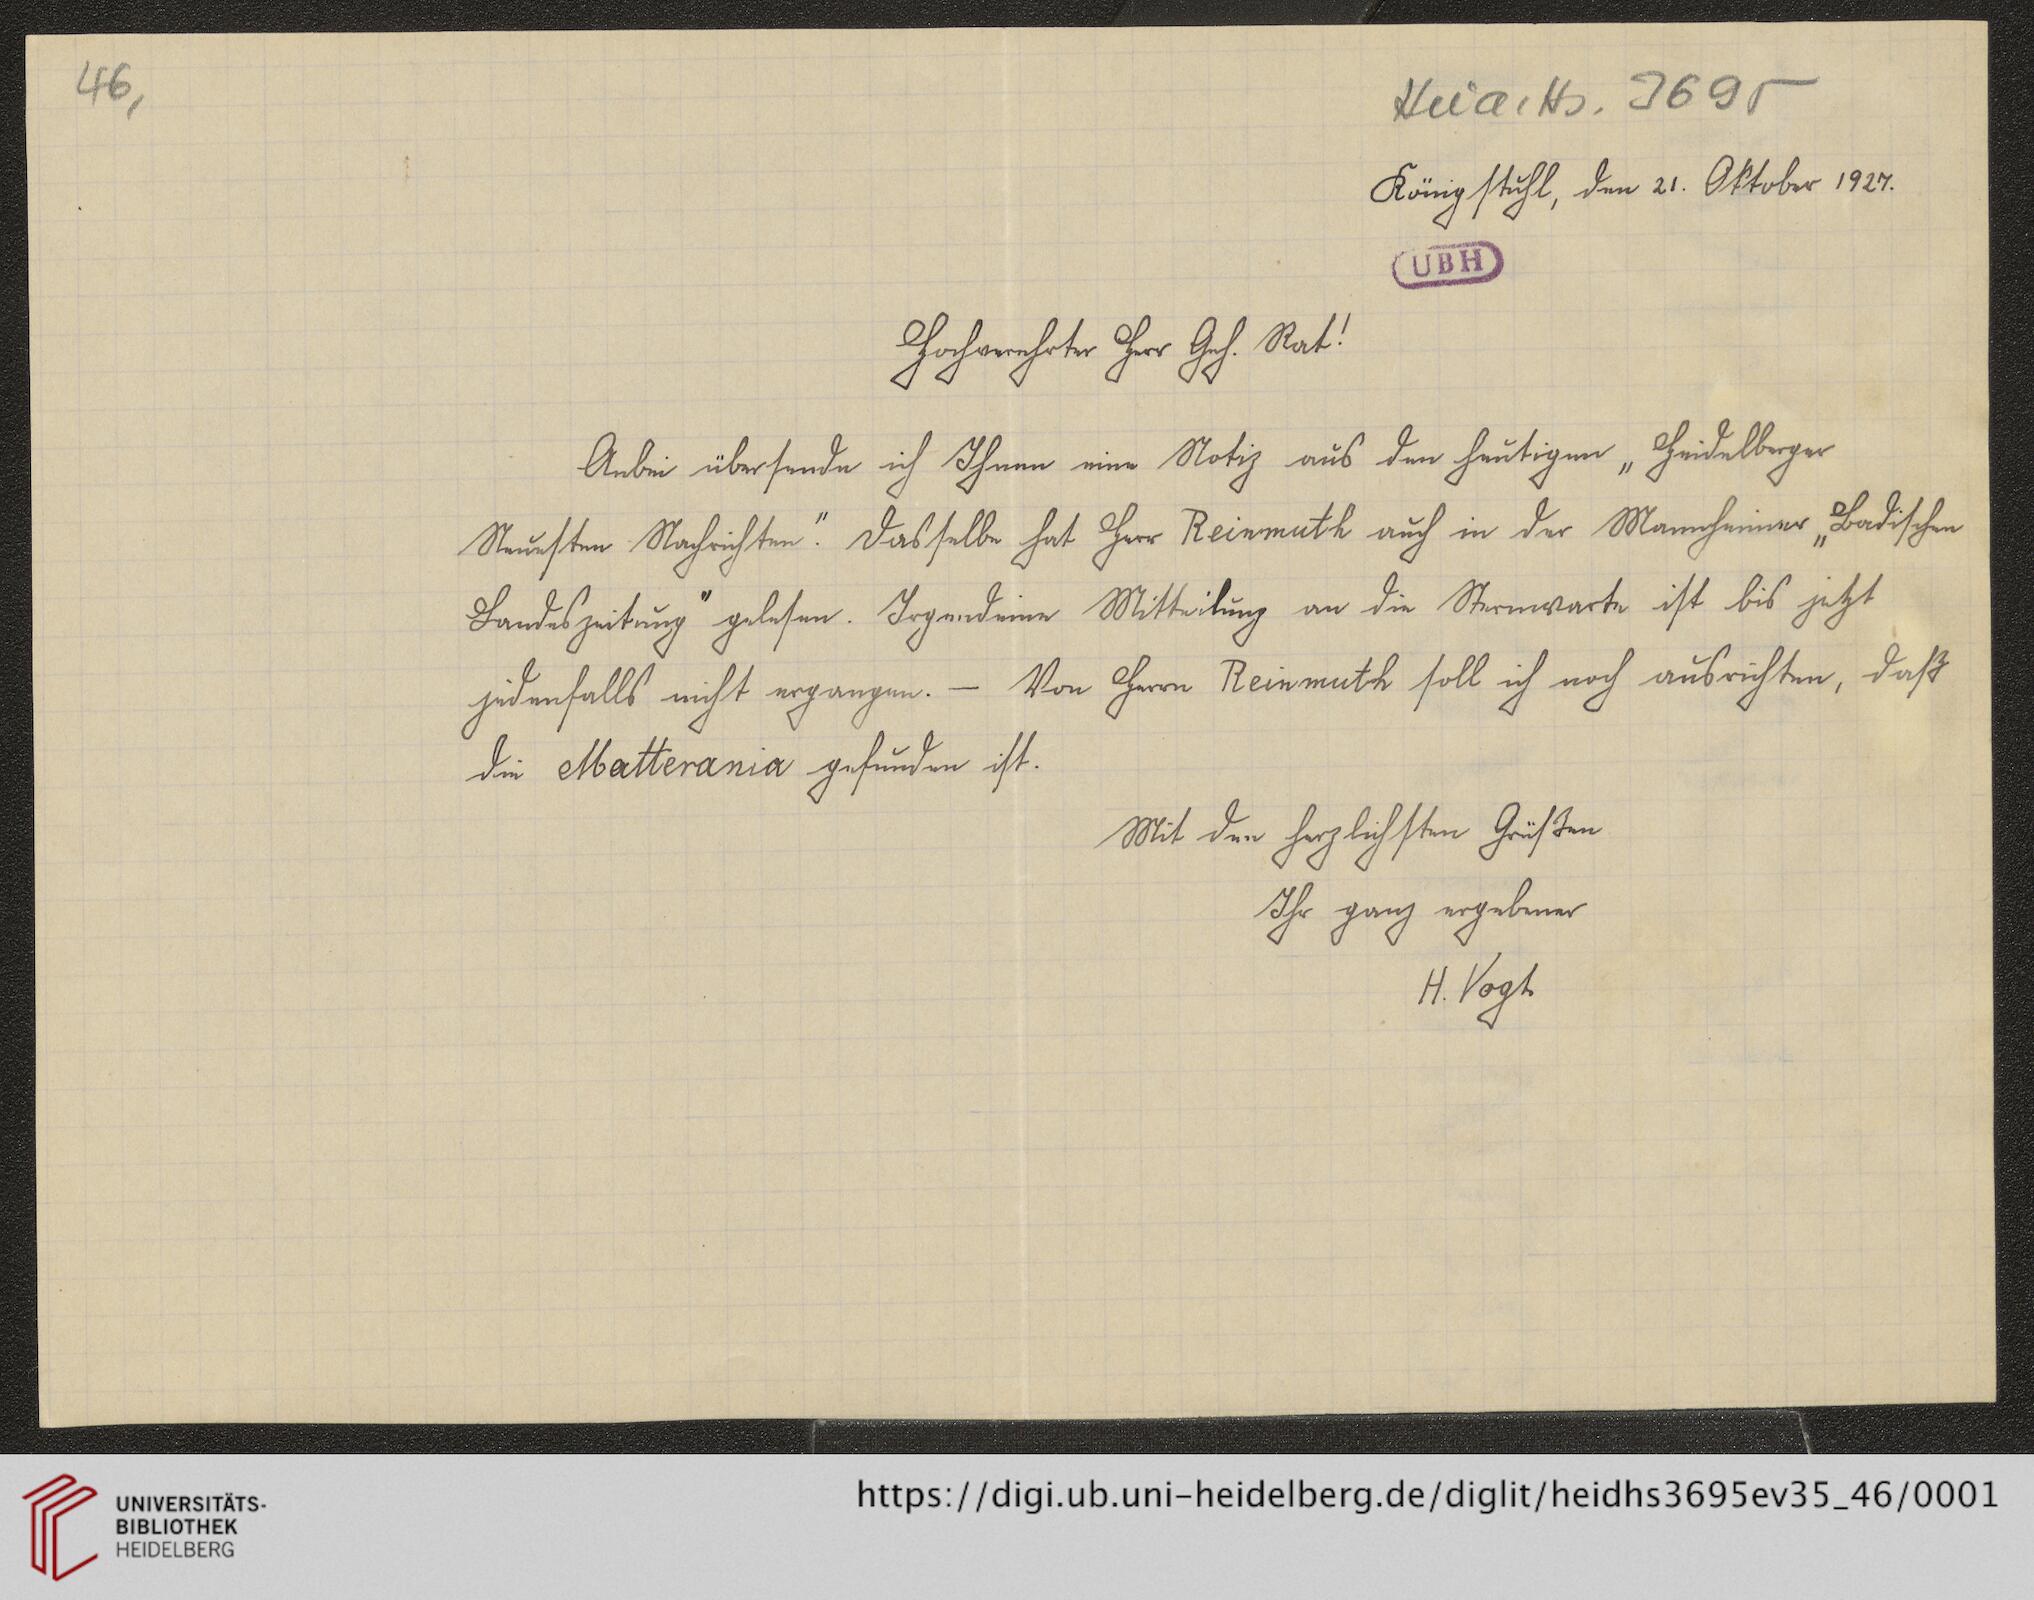 46,
Heid. Hs. 3695
Königstuhl, den 21. Oktober 1927.
UBH
Hochverehrter Herr Geh. Rat!
Anbei übersende ich Ihnen eine Notiz aus den heutigen „Heidelberger
Neuesten Nachrichten". Dasselbe hat Herr Reinmuth auch in der Mannheimer „Badischen
Landeszeitung" gelesen. Irgendeine Mitteilung an die Sternwarte ist bis jetzt
jedenfalls nicht ergangen. — Von Herrn Reinmuth soll ich noch ausrichten, daß
die Matterania gefunden ist.
Mit den herzlichsten Grüßen
Ihr ganz ergebener
H. Vogt
UNIVERSITÄTS-
BIBLIOTHEK
HEIDELBERG
https://digi.ub.uni-heidelberg.de/diglit/heidhs3695ev35_46/0001